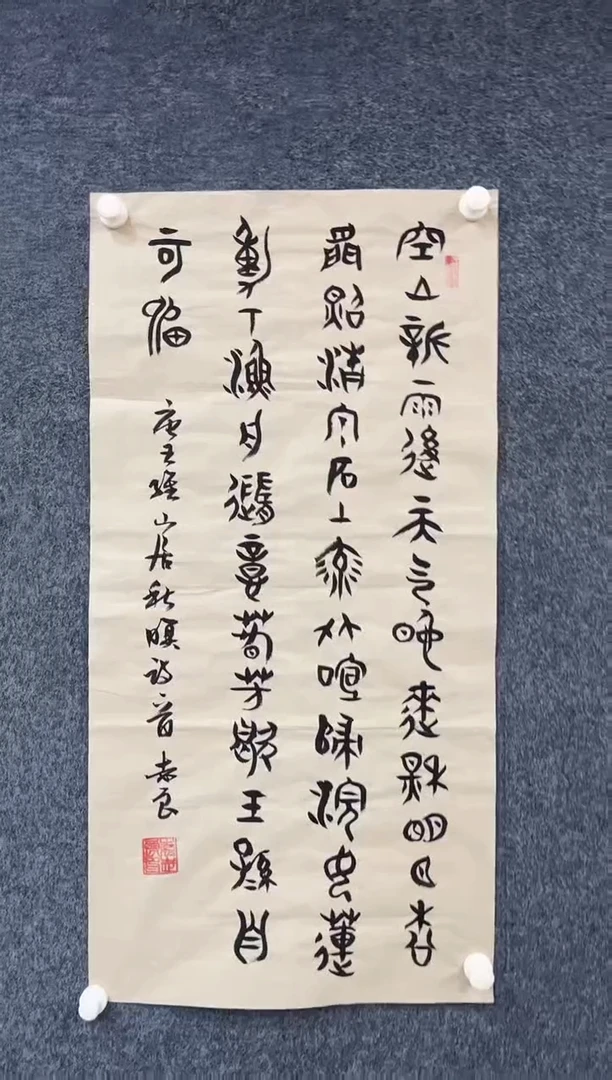 空山新雨後天气晚來秋明月松
間照清泉石上流竹喧歸浣女蓮
動下漁舟隨意春芳歇王孫自
可留
唐王維山居秋暝詩一首 赤良